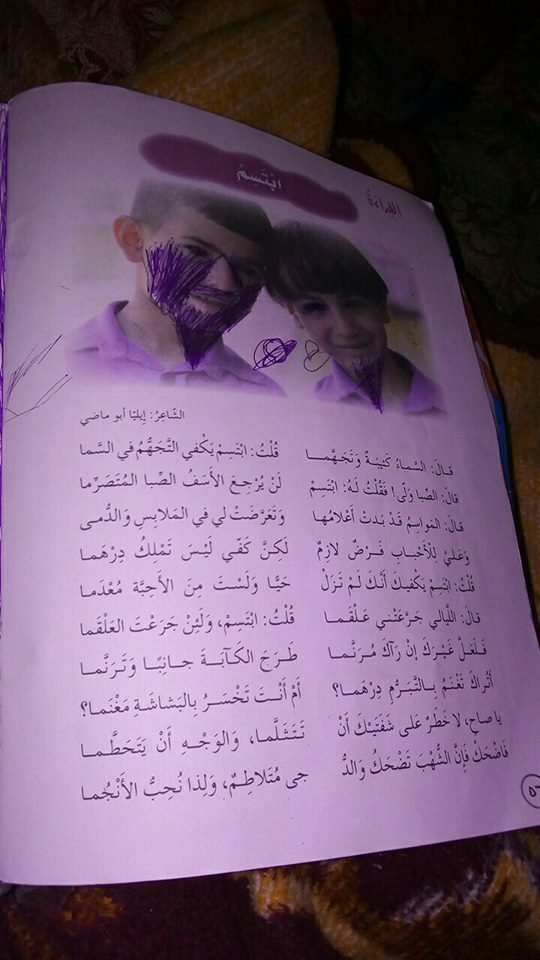 القراءة
ابْتَسِمْ
الشّاعِرُ: إيليّا أبو ماضي
قالَ: السَّماءُ كَئيبَةٌ وَتَجَهَّمـا قُلْتُ: ابْتَسِمْ يَكْفي التَّجَهُّمُ في السَّما
قالَ: الصِّبا وَلّى! فَقُلْتُ لَهُ: ابْتَسِمْ لَنْ يُرْجِعَ الأَسَفُ الصِّبا المُتَصَرِّما
قالَ: المَواسِمُ قَدْ بَدَتْ أَعْلامُها وَتَعَرَّضَتْ لي في المَلابِسِ وَالدُّمى
وَعَلَيَّ لِلْأَحْبابِ فَـرْضٌ لازِمٌ لكِنَّ كَفّي لَيْسَ تَمْلِكُ دِرْهَمـا
قُلْتُ: ابْتَسِمْ يَكْفيكَ أَنَّكَ لَـمْ تَزَلْ حَيًّا وَلَسْتَ مِنَ الأَحِبَّةِ مُعْدَما
قالَ: اللَّيالي جَرَّعَتْني عَلْقَمـا قُلْتُ: ابْتَسِمْ، وَلَئِنْ جَرَعْتَ العَلْقَما
فَلَعَلَّ غَيْرَكَ إِنْ رَآكَ مُرَنَّما طَرَحَ الكَآبَةَ جانِبًا وَتَرَنَّما
أَتُراكَ تَغْنَمُ بِالتَّبَرُّمِ دِرْهَما؟ أَمْ أَنْتَ تَخْسَرُ بِالبَشاشَةِ مَغْنَما؟
يا صاحِ، لا خَطَرٌ عَلى شَفَتَيْكَ أَنْ تَتَثَلَّما، وَالوَجْهِ أَنْ يَتَحَطَّما
فَاضْحَكْ فَإِنَّ الشُّهْبَ تَضْحَكُ وَالدُّ جى مُتَلاطِمٌ، وَلِذا نُحِبُّ الأَنْجُما
٥٦